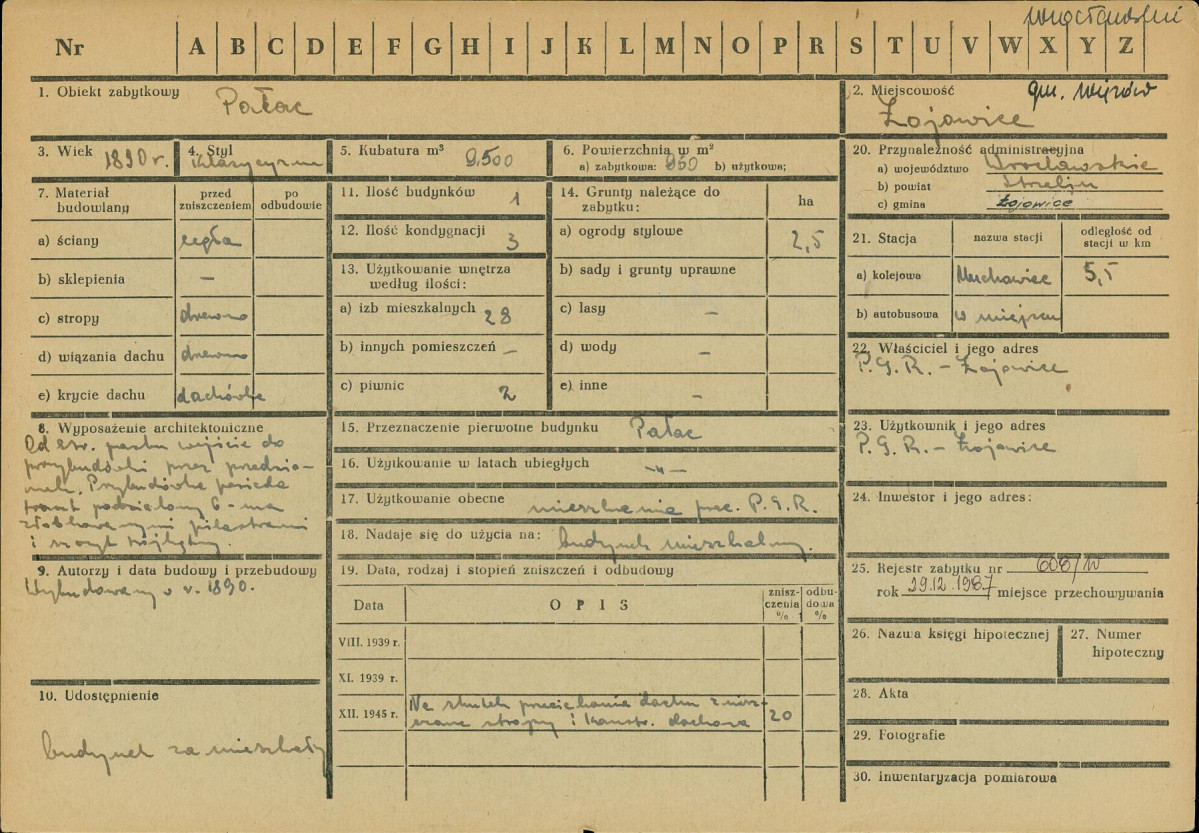 wrocławskie
Nr A B C D E F G H I J K L M N O P R S T U V W X Y Z
1. Obiekt zabytkowy
Pałac
2. Miejscowość
gm. Wiązów
Łojowice
3. Wiek 1890 r.
4. Styl klasycyzm
5. Kubatura m³ 9,500
6. Powierzchnia w m²
a) zabytkowa: 950 b) użytkowa;
20. Przynależność administracyjna
a) województwo Wrocławskie
b) powiat Strzelin
c) gmina Łojowice
7. Materiał budowlany
przed zniszczeniem
po odbudowie
a) ściany cegła
b) sklepienia –
c) stropy drewno
d) wiązania dachu drewno
e) krycie dachu dachówka
11. Ilość budynków 1
12. Ilość kondygnacji 3
13. Użytkowanie wnętrza
według ilości:
a) izb mieszkalnych 28
b) innych pomieszczeń –
c) piwnic 2
14. Grunty należące do
zabytku:
ha
a) ogrody stylowe 2,5
b) sady i grunty uprawne
c) lasy –
d) wody –
e) inne –
21. Stacja
nazwa stacji
odległość od
stacji w km
a) kolejowa 5,5
b) autobusowa w miejscu
22. Właściciel i jego adres
P.G.R. – Łojowice
8. Wyposażenie architektoniczne
Od str. parku wejście do
przybudówki przez przedsio-
nek. Przybudówka posiada
front podzielony 6-ma
żłobkowanymi pilastrami
i szczyt trójkątny.
15. Przeznaczenie pierwotne budynku Pałac
16. Użytkowanie w latach ubiegłych –"–
17. Użytkowanie obecne mieszkania prac. P.G.R.
18. Nadaje się do użycia na: budynek mieszkalny.
23. Użytkownik i jego adres
P.G.R. – Łojowice
24. Inwestor i jego adres:
9. Autorzy i data budowy i przebudowy
Wybudowany w r. 1890.
19. Data, rodzaj i stopień zniszczeń i odbudowy
Data
OPIS
znisz-
czenia
%
odbu-
dowa
%
VIII. 1939 r.
XI. 1939 r.
XII. 1945 r.
Na skutek przeciekania dachu znisz-
czone stropy i konstr. dachowa
20
25. Rejestr zabytku nr 608/W
rok 29.12.1987 miejsce przechowywania
26. Nazwa księgi hipotecznej
27. Numer
hipoteczny
10. Udostępnienie
budynek zamieszkały
28. Akta
29. Fotografie
30. Inwentaryzacja pomiarowa